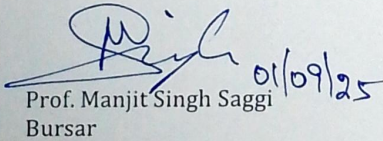 01/09/25
Prof. Manjit Singh Saggi
Bursar